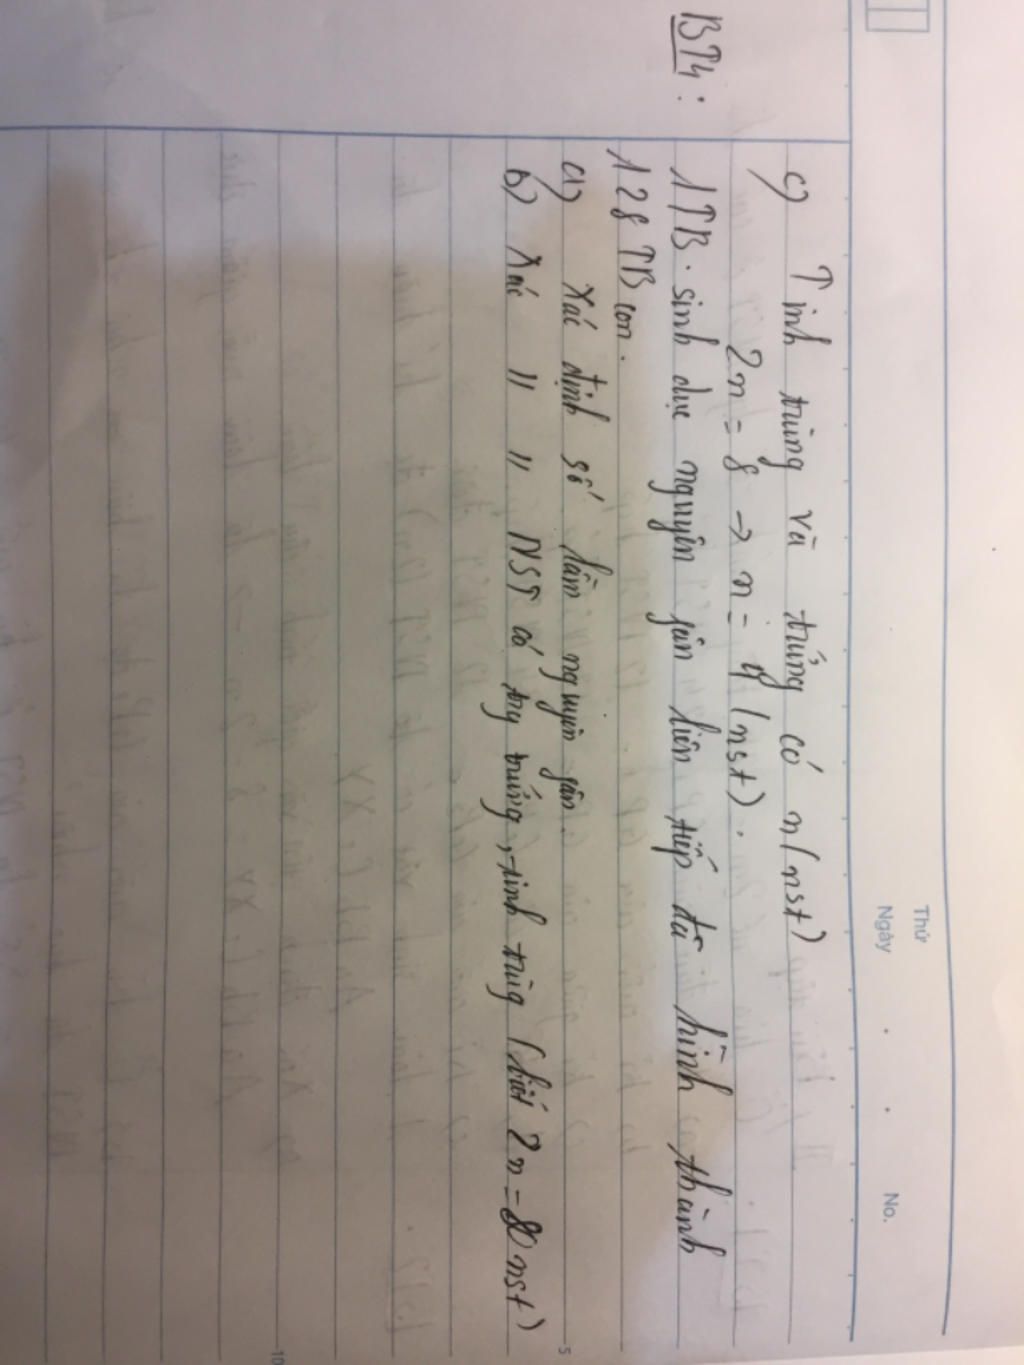 Thứ
Ngày
No.
c) Tinh trùng và trứng có n (nst)
2n = 8 → n = 4 (nst).
BT4: 1 TB sinh dục nguyên phân liên tiếp đã hình thành
128 TB con.
a) Xác định số lần nguyên phân.
b) Xác " " NST có trg trứng, tinh trùng (biết 2n = nst)
5
10